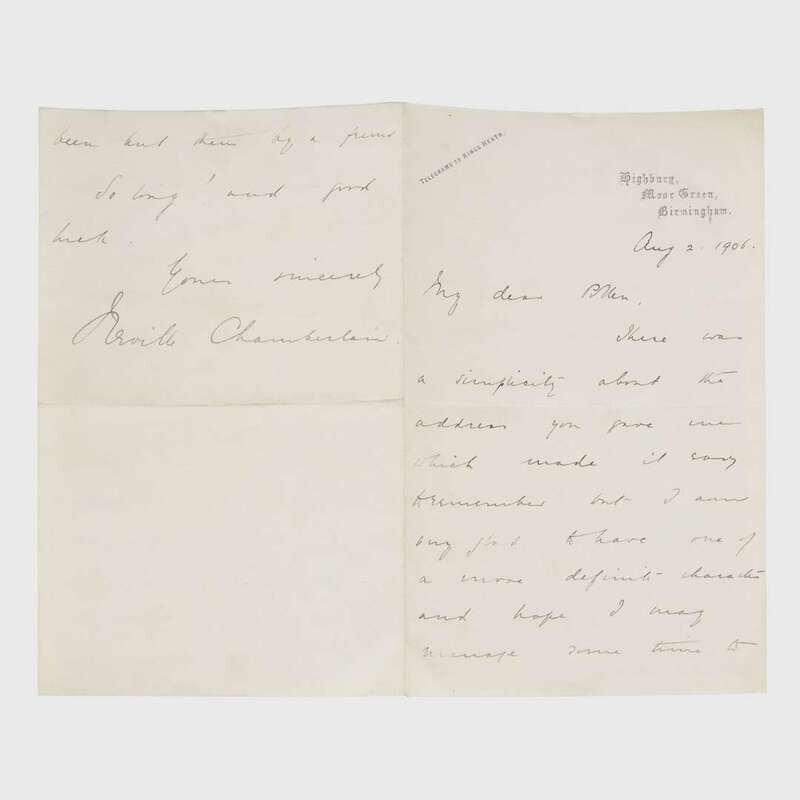 TELEGRAMS TO KINGS HEATH.
Highbury,
Moor Green,
Birmingham.
Aug 2. 1906.
My dear
There was
a simplicity about the
address you gave me
which made it easy
to remember but I am
very glad to have one of
a more definite character
and hope I may
manage some time to
been sent them by a friend
So long! and good
luck.
Yours sincerely
Neville Chamberlain.